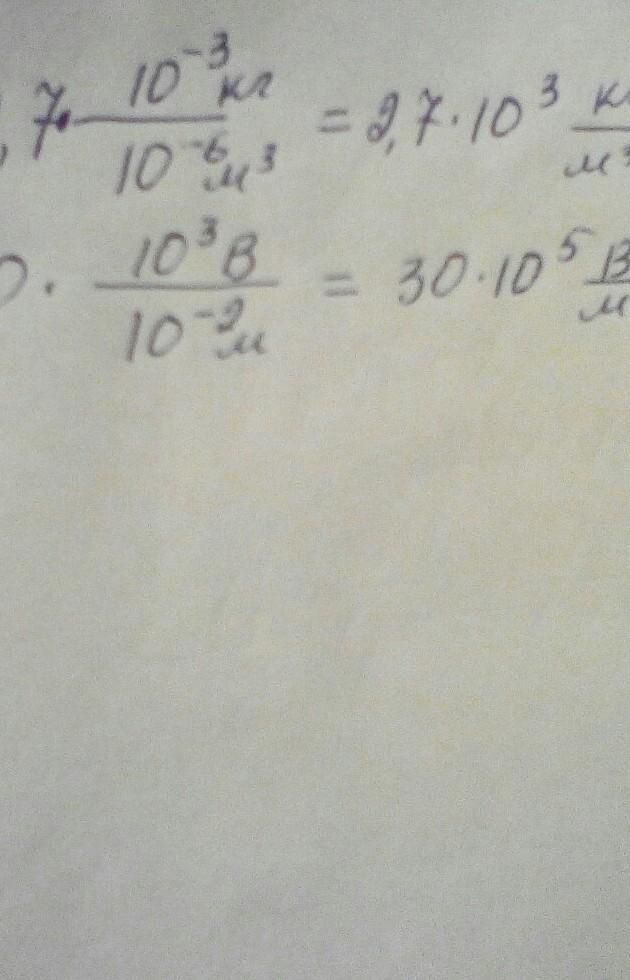 ,7 · 10⁻³ кг / 10⁻⁶ м³ = 2,7 · 10³ к / м³
0 · 10³ В / 10⁻² м = 30 · 10⁵ В / м